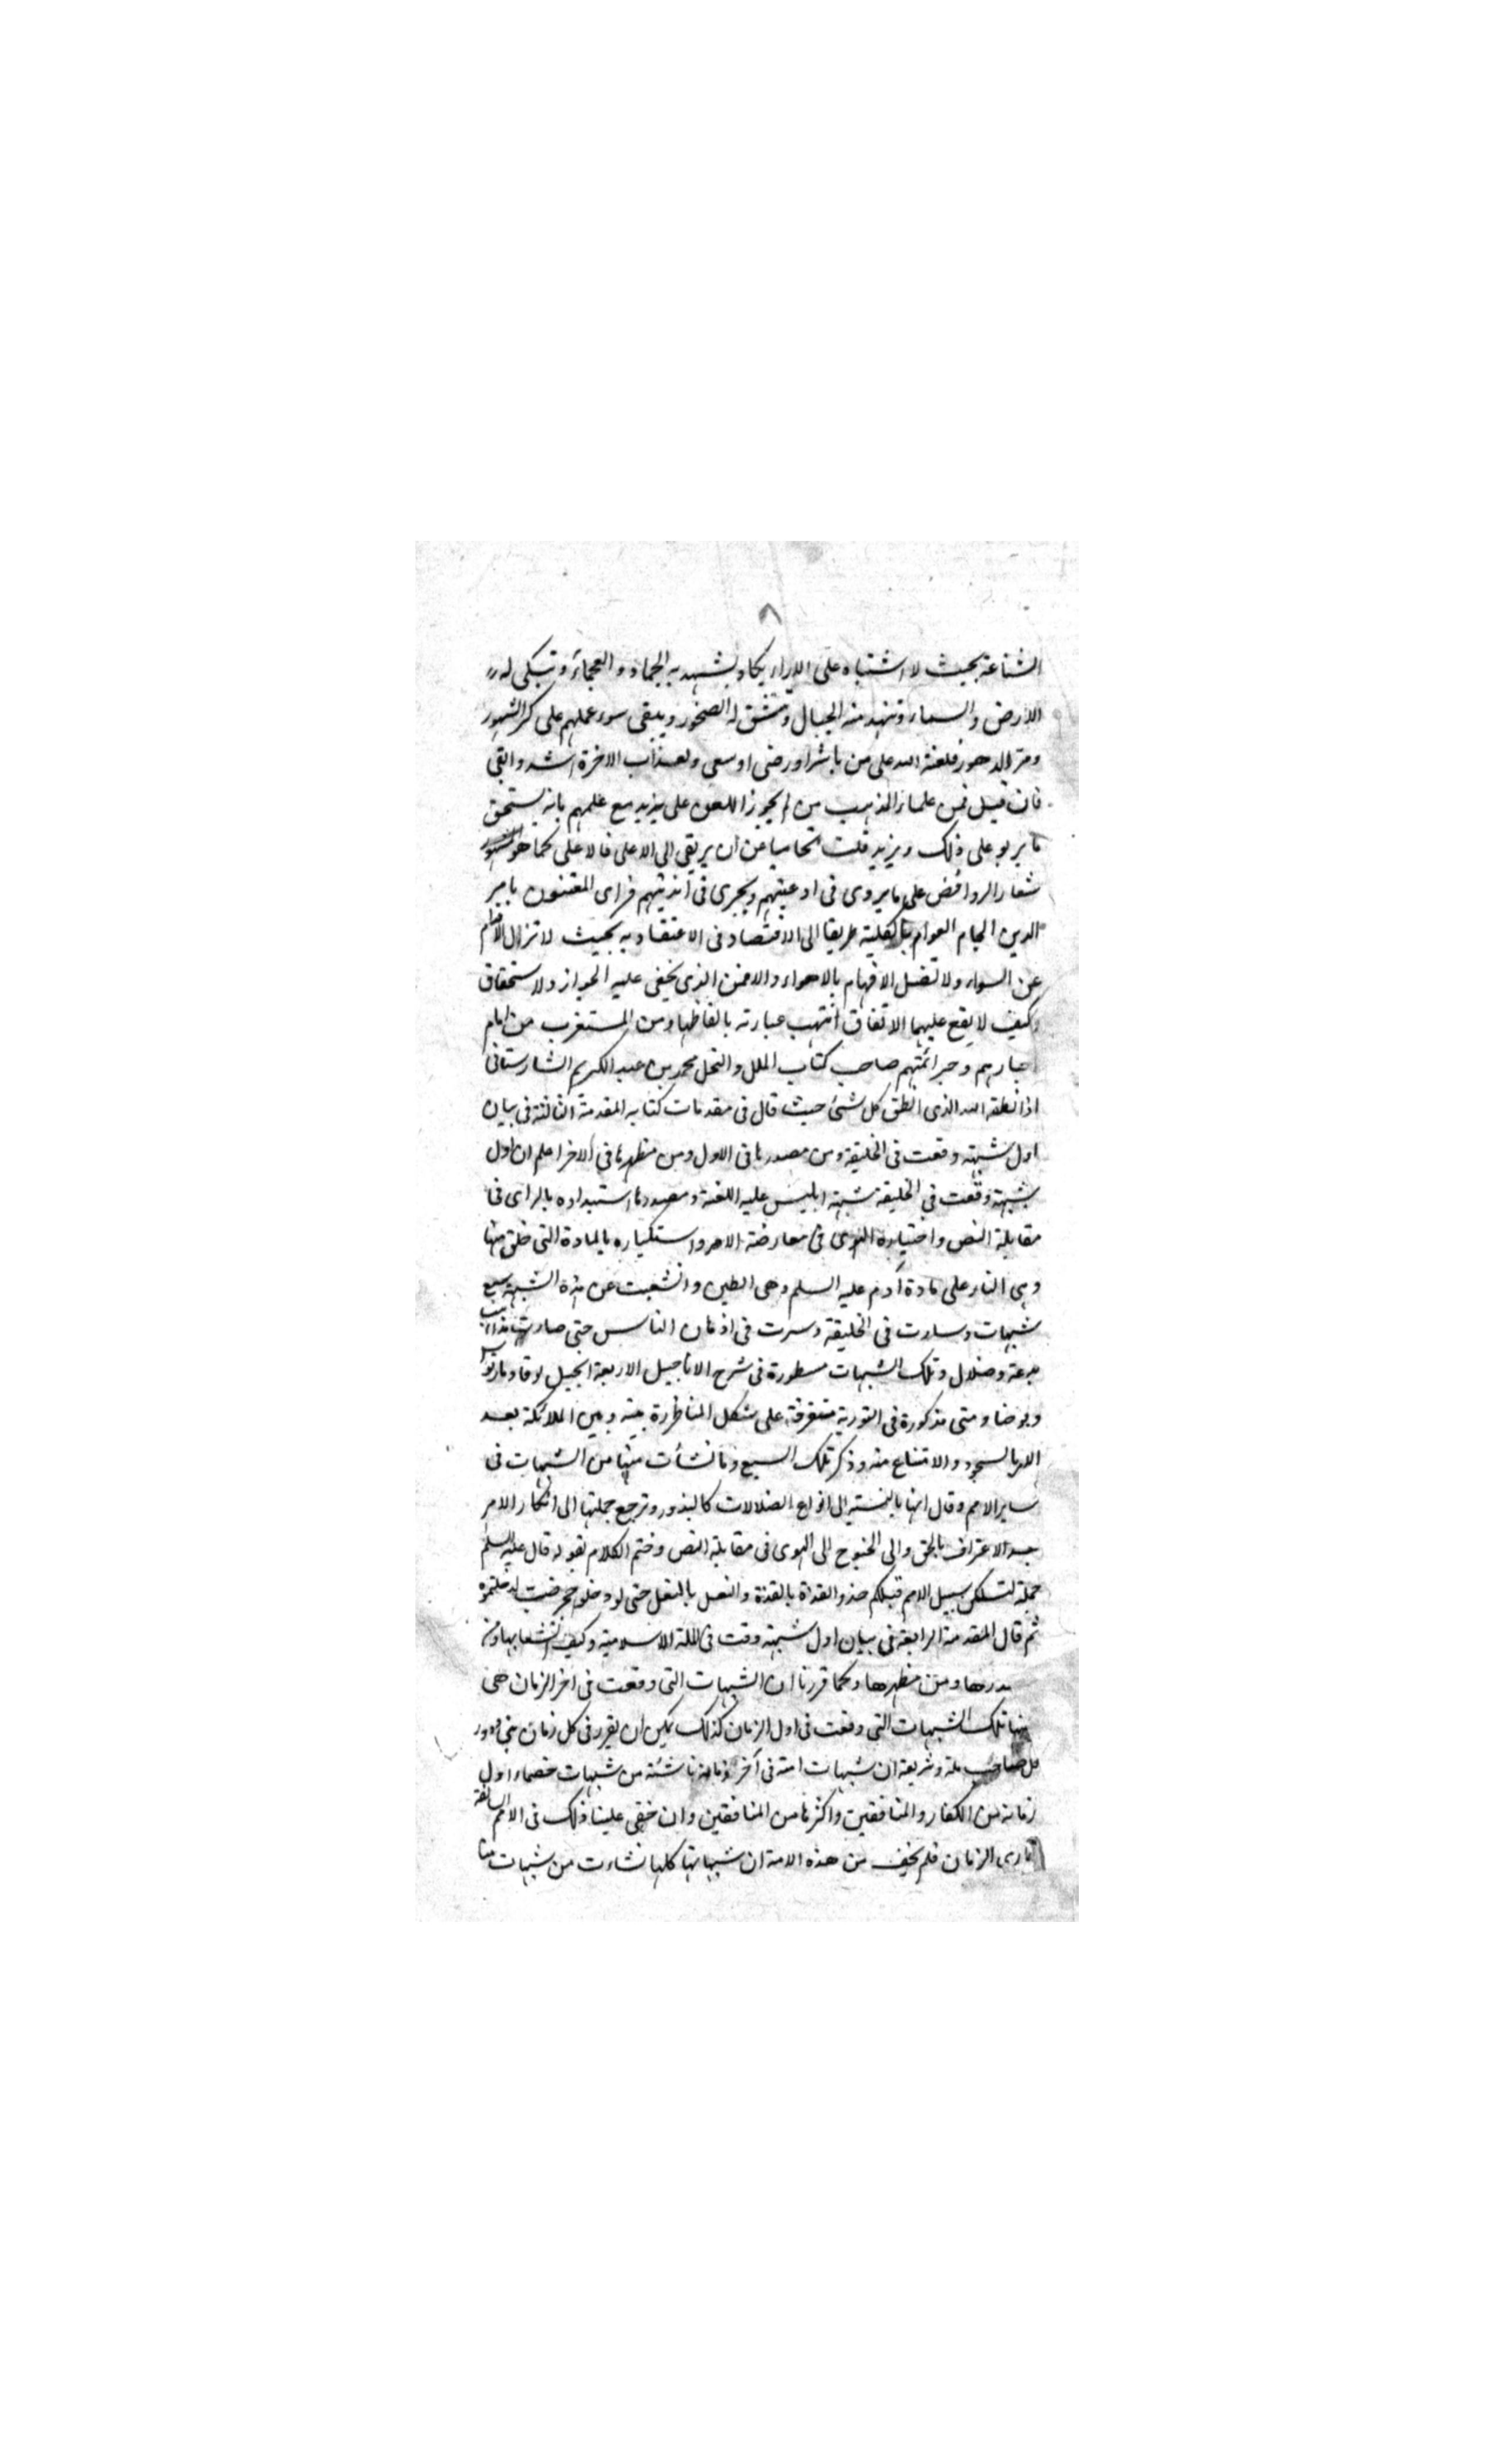 ٨
الشناعة بحيث لا اشتباه على الاراء يكاد يشهد به الجماد والعجماء وتبكى له
الارض والسماء وتنهد منه الجبال وتنشق له الصخور ويبقى سوء عملهم على كر الشهور
ومر الدهور فلعنة الله على من باشر او رضى او سعى ولعذاب الاخرة اشد وابقى
فان قيل فمن علماء المذهب من لم يجوز اللعن على يزيد مع علمهم بانه يستحق
ما يربو على ذلك ويزيد قلت تحاميا عن ان يرتقى الى الاعلى فالاعلى كما هو
شعار الروافض على ما يروى فى ادعيتهم ويجرى فى انديتهم فراى المعتنون بامر
الدين الجام العوام بالكلية طريقا الى الاقتصاد فى الاعتقاد به بحيث لا تزال الاقدام
عن السواء ولا تضل الافهام بالاهواء والا فمن الذى يخفى عليه الجواز والاستحقاق
وكيف لا يقع عليهما الاتفاق انتهت عبارته بالفاظها ومن المستغرب من امام
احبارهم وحبر ائمتهم صاحب كتاب الملل والنحل محمد بن عبد الكريم الشارستانى
اذ انطقه الله الذى انطق كل شئ حيث قال فى مقدمات كتابه المقدمة الثالثة فى بيان
اول شبهة وقعت فى الخليقة ومن مصدرها فى الاول ومن مظهرها فى الاخر اعلم ان اول
شبهة وقعت فى الخليقة شبهة ابليس عليه اللعنة ومصدرها استبداده بالراى فى
مقابلة النص واختياره الهوى فى معارضة الامر واستكباره بالمادة التى خلق منها
وهى النار على مادة آدم عليه السلم وهى الطين وانشعبت عن هذه الشبهة سبع
شبهات وسارت فى الخليقة وسرت فى اذهان الناس حتى صارت مذاهب
بدعة وضلال وتلك الشبهات مسطورة فى شرح الاناجيل الاربعة انجيل لوقا ومارقوس
ويوحنا ومتى مذكورة فى التورية متفرقة على شكل المناظرة بينه وبين الملائكة بعد
الامر بالسجود والامتناع منه وذكر تلك السبع وما نشأت منها من الشبهات فى
ساير الامم وقال انها بالنسبة الى انواع الضلالات كالبذور وترجع جملتها الى انكار الامر
بعد الاعتراف بالحق والى الجنوح الى الهوى فى مقابلة النص وختم الكلام بقوله قال عليه السلم
جملة لتسلكن سبيل الامم قبلكم حذو القذة بالقذة والنعل بالنعل حتى لو دخلوا جحر ضب لدخلتموه
ثم قال المقدمة الرابعة فى بيان اول شبهة وقعت فى الملة الاسلامية وكيف انشعابها ومن
مصدرها ومن مظهرها وكما قررنا ان الشبهات التى وقعت فى اخر الزمان هى
بعينها تلك الشبهات التى وقعت فى اول الزمان كذلك يمكن ان يقرر فى كل زمان نبى ودور
كل صاحب ملة وشريعة ان شبهات امته فى آخر زمانه ناشئة من شبهات خصماء اول
زمانه من الكفار والمنافقين واكثرها من المنافقين وان خفى علينا ذلك فى الامم السالفة
لتمادى الزمان فلم يخف من هذه الامة ان شبهاتها كلها نشاءت من شبهات